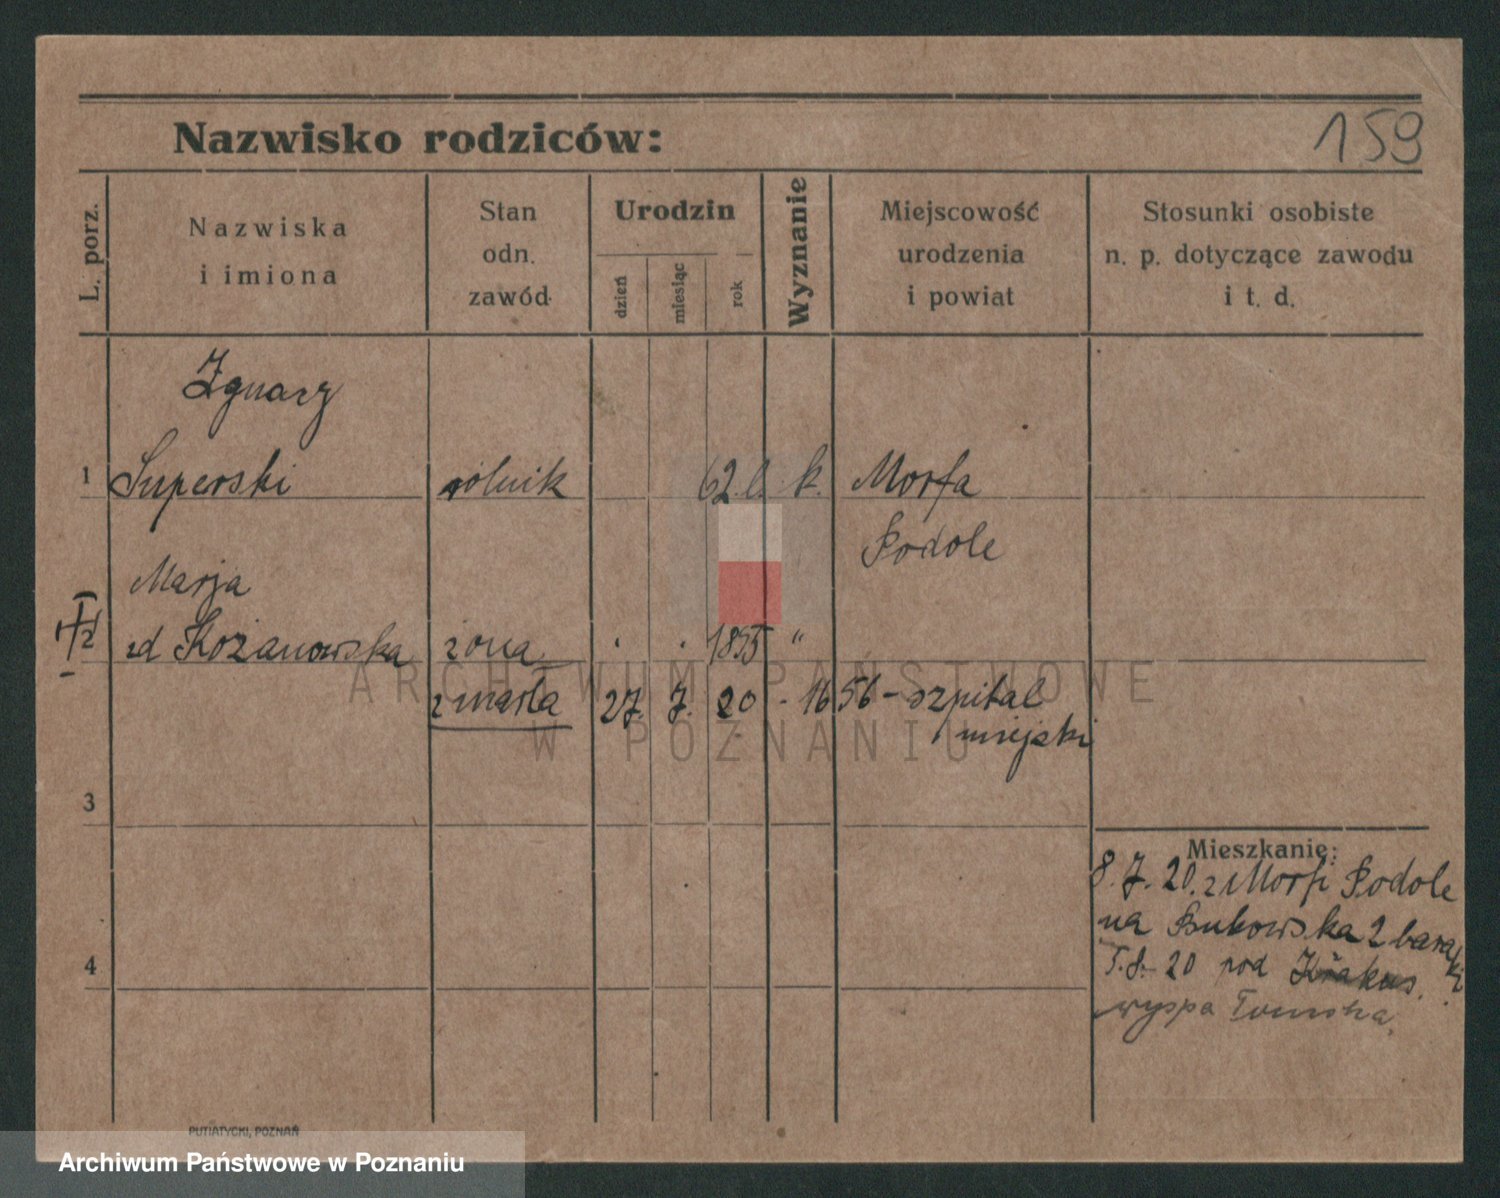 159
Nazwisko rodziców:
L. porz.
Nazwiska
i imiona
Stan
odn.
zawód
Urodzin
dzień
miesiąc
rok
Wyznanie
Miejscowość
urodzenia
i powiat
Stosunki osobiste
n. p. dotyczące zawodu
i t. d.
Ignacy
1 Superski rolnik 62 l. k. Morfa
Podole
Marja
2 zd Kożanowska żona . . 1855 "
zmarła 27. 7. 20 - 1656 - szpital
miejski
3
4
Mieszkanie:
8. 7. 20. z Morfi Podole
na Bukowska 2 baraki
5.8.- 20 pod Krakus.
wyspa Tumska
PUTIATYCKI, POZNAŃ
ARCHIWUM PAŃSTWOWE
W POZNANIU
Archiwum Państwowe w Poznaniu